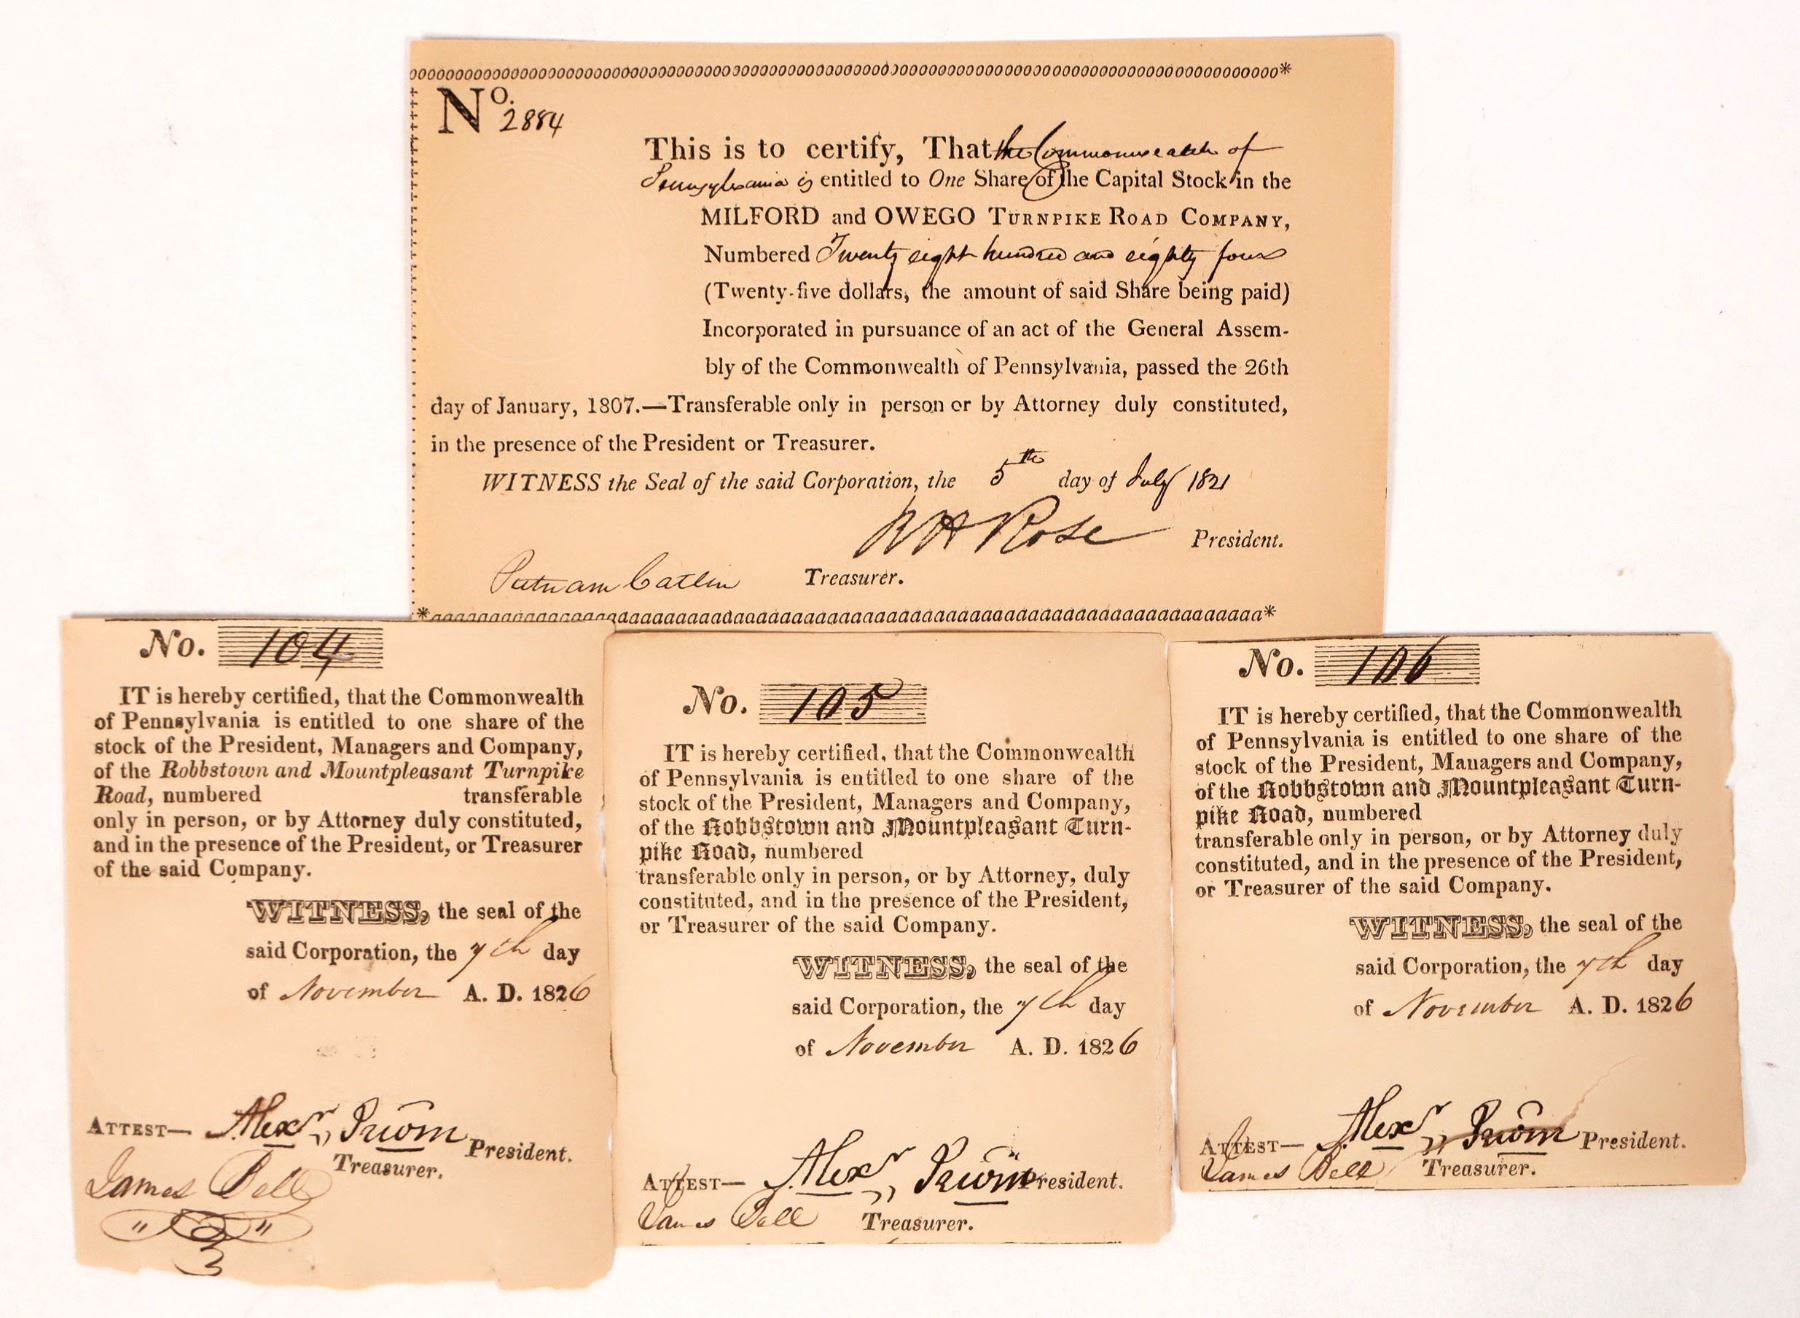 No. 2884
This is to certify, That the Commonwealth of
Pennsylvania is entitled to One Share of the Capital Stock in the
MILFORD and OWEGO TURNPIKE ROAD COMPANY,
Numbered Twenty eight hundred and eighty four
(Twenty-five dollars, the amount of said Share being paid)
Incorporated in pursuance of an act of the General Assem-
bly of the Commonwealth of Pennsylvania, passed the 26th
day of January, 1807.—Transferable only in person or by Attorney duly constituted,
in the presence of the President or Treasurer.
WITNESS the Seal of the said Corporation, the 5th day of July 1821
R H Rose President.
Putnam Catlin Treasurer.
No. 104
IT is hereby certified, that the Commonwealth
of Pennsylvania is entitled to one share of the
stock of the President, Managers and Company,
of the Robbstown and Mountpleasant Turnpike
Road, numbered transferable
only in person, or by Attorney duly constituted,
and in the presence of the President, or Treasurer
of the said Company.
WITNESS, the seal of the
said Corporation, the 7th day
of November A. D. 1826
ATTEST— Alexr Irwin President.
James Bell Treasurer.
No. 105
IT is hereby certified, that the Commonwealth
of Pennsylvania is entitled to one share of the
stock of the President, Managers and Company,
of the Robbstown and Mountpleasant Turn-
pike Road, numbered
transferable only in person, or by Attorney, duly
constituted, and in the presence of the President,
or Treasurer of the said Company.
WITNESS, the seal of the
said Corporation, the 7th day
of November A. D. 1826
ATTEST— Alexr Irwin President.
James Bell Treasurer.
No. 106
IT is hereby certified, that the Commonwealth
of Pennsylvania is entitled to one share of the
stock of the President, Managers and Company,
of the Robbstown and Mountpleasant Turn-
pike Road, numbered
transferable only in person, or by Attorney duly
constituted, and in the presence of the President,
or Treasurer of the said Company.
WITNESS, the seal of the
said Corporation, the 7th day
of November A. D. 1826
ATTEST— Alexr Irwin President.
James Bell Treasurer.